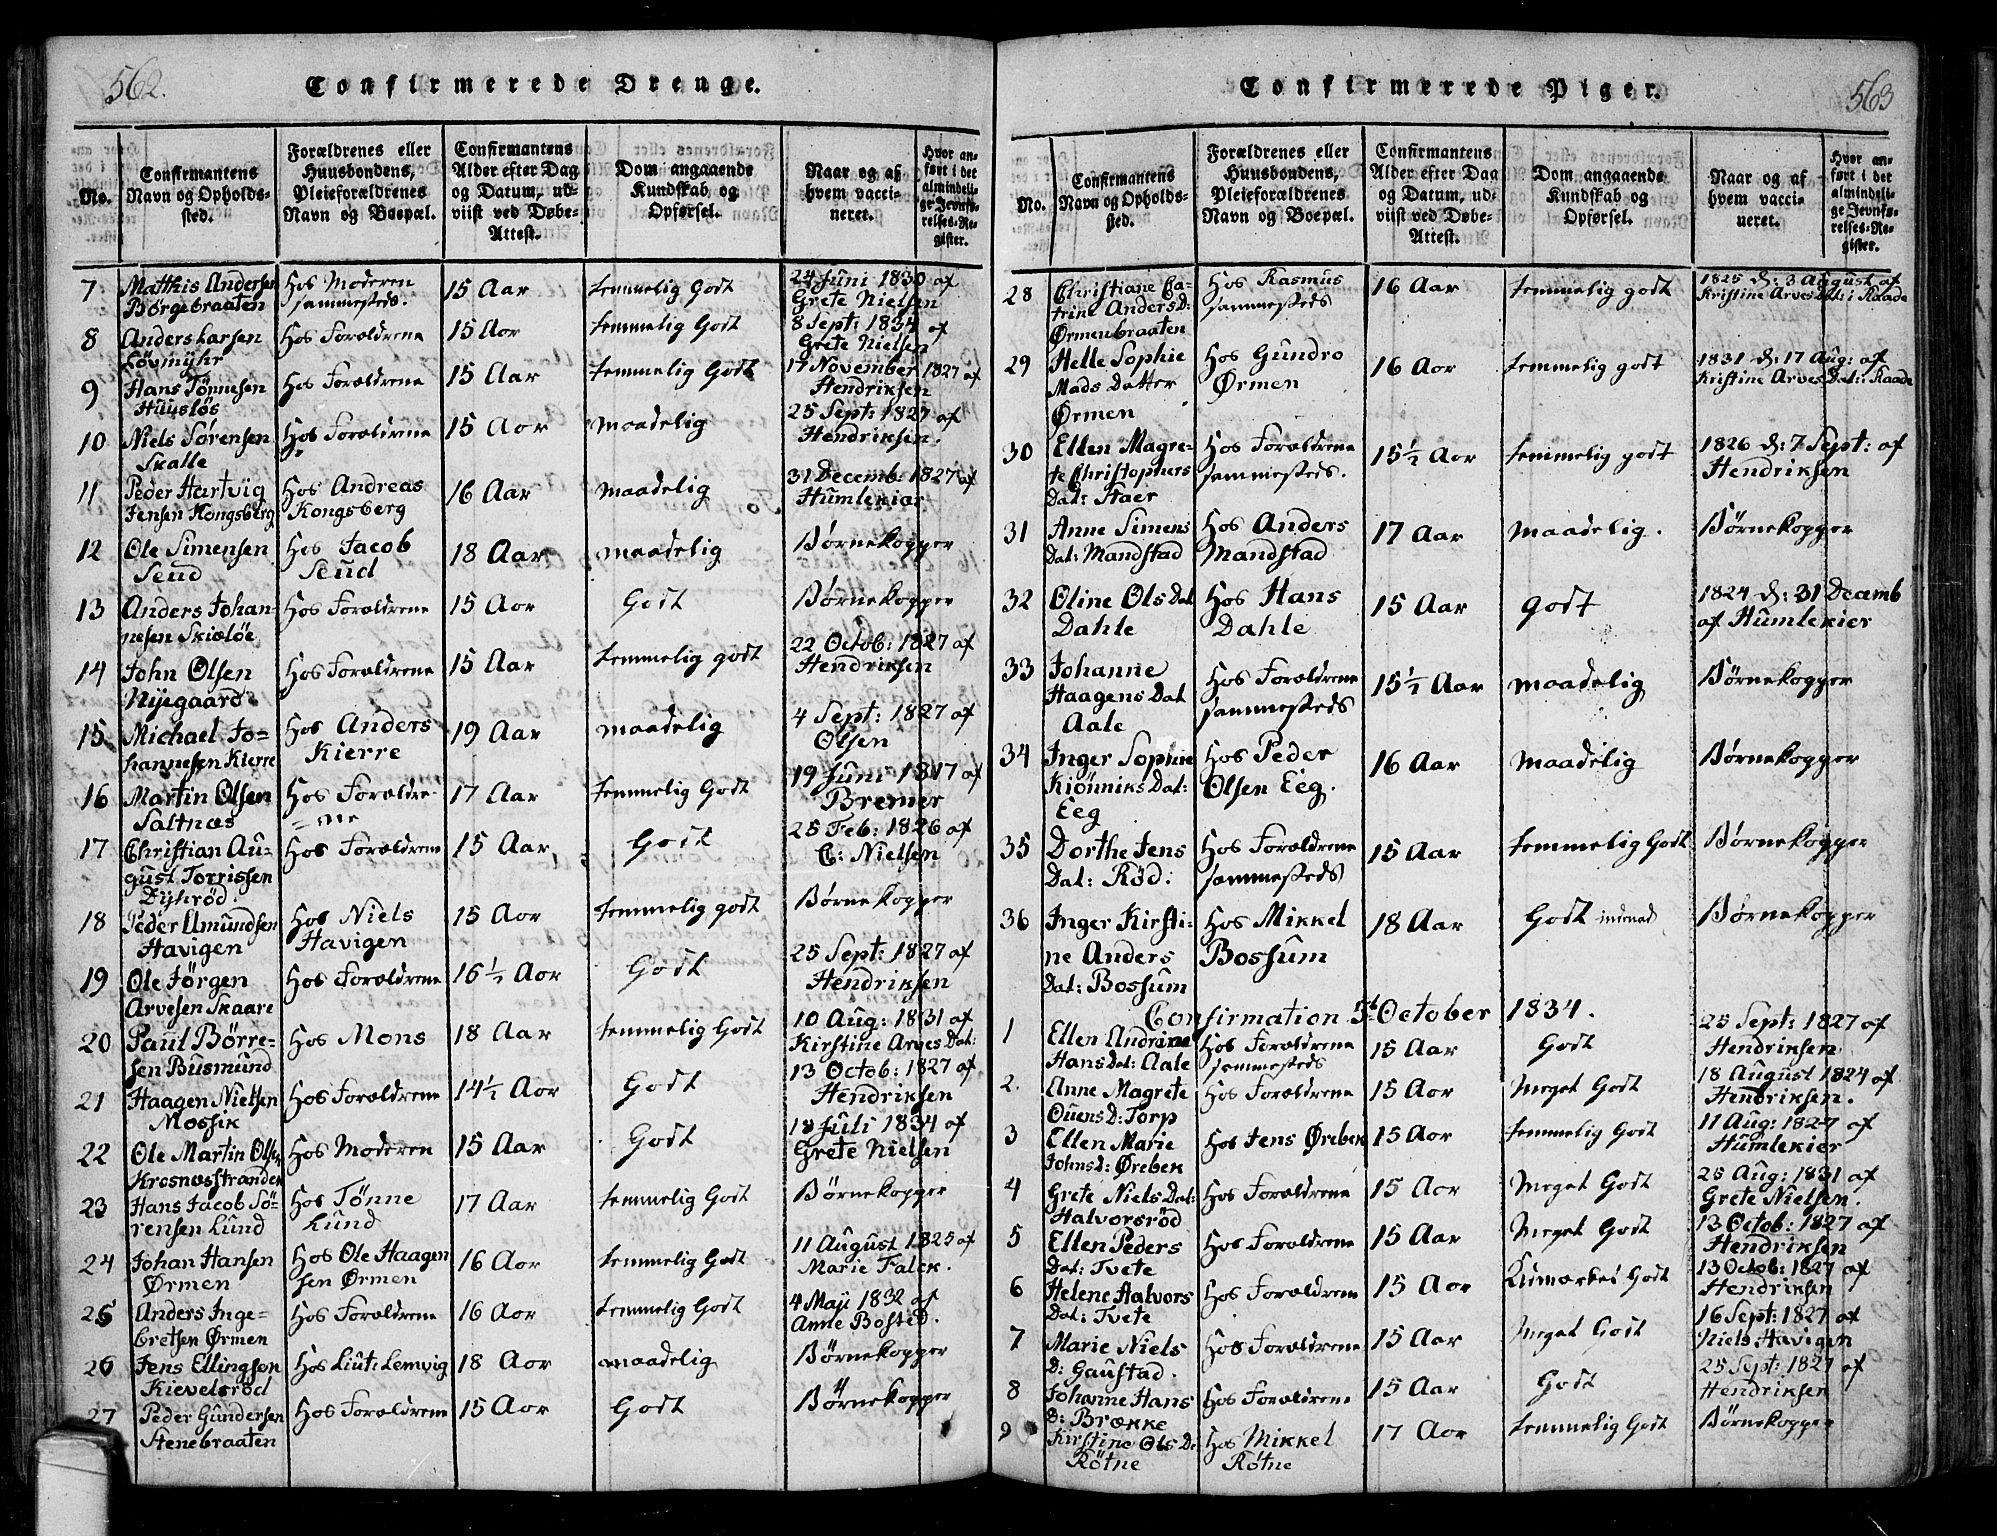 562.
Confirmerede Drenge.
No.
Confirmantens
Navn og Opholds-
sted.
Forældrenes eller
Huusbondens,
Pleieforældrenes
Navn og Boepæl.
Confirmantens
Alder efter Dag
og Datum, ud-
viist ved Døbe-
Attest.
Dom angaaende
Kundskab og
Opførsel.
Naar og af
hvem vacci-
neret.
Hvor an-
ført i det
almindeli-
ge Jevnfø-
relses-Re-
gister.
7 Matthis Andersen Hos Moderen 15 Aar temmelig Godt 24 Juni 1830 af
Børgebraaten sammesteds. Grete Nielsen
8 Anders Larsen Hos Forældrene 15 Aar temmelig Godt 8 Sept: 1834 af
Løvmyhr Grete Nielsen
9 Hans Tønnesen Hos Forældrene 15 Aar temmelig Godt 17 November 1827 af
Huusløs Hendriksen
10 Niels Sørensen Hos Forældrene 15 Aar maadelig 25 Sept: 1827 af
Skalle Hendriksen.
11 Peder Hartvig Hos Andreas 16 Aar maadelig 31 Decemb: 1827 af
Jensen Kongsberg Kongsberg Humlekiær
12 Ole Simensen Hos Jacob 18 Aar maadelig Børnekopper
Seud Seud
13 Anders Johan- Hos Forældrene 15 Aar Godt Børnekopper
nesen Skieløe
14 John Olsen Hos Forældrene 15 Aar temmelig godt 22 Octob: 1827 af
Nyegaard Hendriksen
15 Michael Jo- Hos Anders 19 Aar maadelig 4 Sept: 1827 af
hannesen Kierre Kierre Olsen
16 Martin Olsen Hos Forældre- 17 Aar temmelig Godt 19 Juni 1817 af
Saltnæs =ne Bremer
17 Christian Au- Hos Forældrene 15 Aar Godt 25 Feb: 1826 af
gust Torrissen C: Nielsen
Dyhrød.
18 Peder Amundsen Hos Niels 15 Aar temmelig godt Børnekopper
Havigen Havigen
19 Ole Jörgen Hos Forældrene 16½ Aar Godt 25 Sept: 1827 af
Arvesen Skaare Hendriksen
20 Paul Børre- Hos Mons 18 Aar temmelig Godt 10 Aug: 1831 af
sen Busmund Kirstine Arves Dat:
21 Haagen Nielsen Hos Forældrene 14½ Aar Godt 13 Octob: 1827 af
Mossik Hendriksen
22 Ole Martin Olsen Hos Moderen 15 Aar Godt 18 Juli 1834 af
Krosnæsstranden Grete Nielsen
23 Hans Jacob Sö- Hos Tønne 17 Aar temmelig Godt Børnekopper
rensen Lund Lund
24 Johan Hansen Hos Ole Haagen 16 Aar temmelig Godt 11 August 1825 af
Ørmen sen Ørmen Marie Falck.
25 Anders Inge- Hos Forældrene 16 Aar temmelig Godt 4 Maji 1832 af
bretsen Ørmen Anne Bosted.
26 Jens Ellingsen Hos Liut: Lemvig 18 Aar maadelig Børnekopper
Kievelsrød
27 Peder Gundersen Hos Forældrene 15 Aar Godt Børnekopper
Stenebraaten
563
Confirmerede Piger.
No.
Confirmantens
Navn og Opholds-
sted.
Forældrenes eller
Huusbondens,
Pleieforældrenes
Navn og Boepæl.
Confirmantens
Alder efter Dag
og Datum, ud-
viist ved Døbe-
Attest.
Dom angaaende
Kundskab og
Opførsel.
Naar og af
hvem vacci-
neret.
Hvor an-
ført i det
almindeli-
ge Jevnfø-
relses-Re-
gister.
28 Christiane Ca- Hos Rasmus 16 Aar temmelig godt 1825 d: 3 August af
trine Anders D: sammesteds Kristine Arves Dat: i Raade
Ørmenbraaten
29 Helle Sophie Hos Gundro 16 Aar temmelig godt 1831 d: 17 Aug: af
Mads Datter Ørmen Kristine Arves Dat: Raade
Ørmen
30 Ellen Magre- Hos Forældrene 15½ Aar temmelig godt 1826 d: 7 Sept: af
te Christophers sammesteds. Hendriksen
Dat: Haer
31 Anne Simens Hos Anders 17 Aar maadelig. Børnekopper
Dat: Mandstad Mandstad
32 Oline Ols Dat Hos Hans 15 Aar godt 1824 d: 31 Decemb
Dahle Dahle af Humlekier
33 Johanne Hos Forældrene 15½ Aar maadelig Børnekopper
Haagens Dat sammesteds
Aale
34 Inger Sophie Hos Peder 16 Aar maadelig Børnekopper
Kiönniks Dat: Olsen Eeg.
Eeg
35 Dorthe Jens Hos Forældrene 15 Aar temmelig Godt Børnekopper
Dat: Rød. sammesteds
36 Inger Kirsti- Hos Mikkel 18 Aar Godt Børnekopper
ne Anders Bossum
Dat: Bossum
Confirmation 5t October 1834.
1 Ellen Andrine Hos Forældrene 15 Aar Godt 25 Sept: 1827 af
Hans Dat: Aale sammesteds Hendriksen
2. Anne Magrete Hos Forældrene 15 Aar Meget Godt 18 August 1824 af
Ouens D: Torp Hendriksen.
3 Ellen Marie Hos Jens Ørebek 15 Aar temmelig Godt 11 Aug: 1827 af
Johns D: Ørebek Humlekier
4 Grete Niels Dat: Hos Forældrene 15 Aar Meget Godt 25 Aug: 1831 af
Halvorsrød Grete Nielsen.
5 Ellen Peders Hos Forældrene 15 Aar Meget Godt 13 Octob: 1827 af
Dat: Tvete Hendriksen
6 Helene Halvors Hos Forældrene 15 Aar Godt 13 Octob: 1827 af
Dat: Tvete Hendriksen
7 Marie Niels Hos Forældrene 15 Aar Meget Godt 16 Sept: 1827 af
D: Gaustad. Niels Havigen
8 Johanne Hans Hos Forældrene 15 Aar Godt 25 Sept: 1827 af
D: Brække Hendriksen
9 Kirstine Ols D: Hos Mikkel 17 Aar temmelig Godt Børnekopper
Røtne Røtne